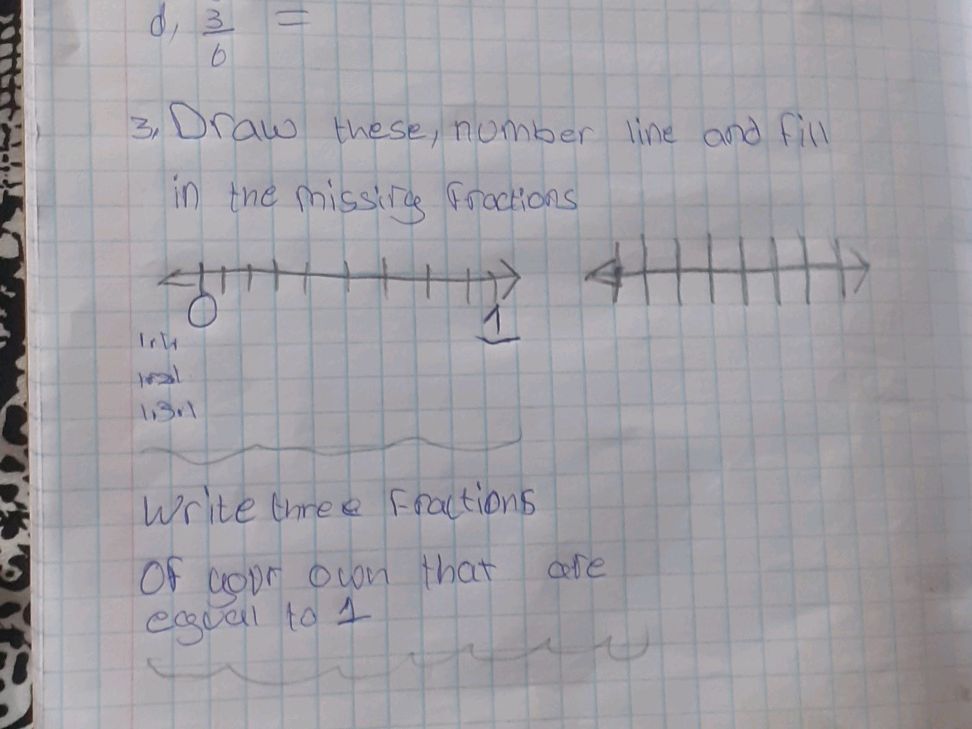 d, 3/6 =
3, Draw these, number line and fill
in the missing fractions
0 1
Write three Fractions
Of your own that are
equal to 1